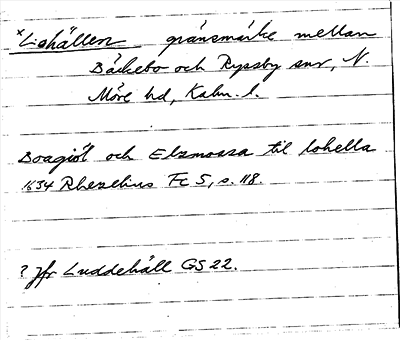 *Lohällen gränsmärke mellan
Bäckebo och Ryssby snr, N.
Möre hd, Kalm. l.
Boagiöl och Elsmossa til lohella
1634 Rhezelius Fc 5, s. 118.
? Jfr Luddehäll GS 22.